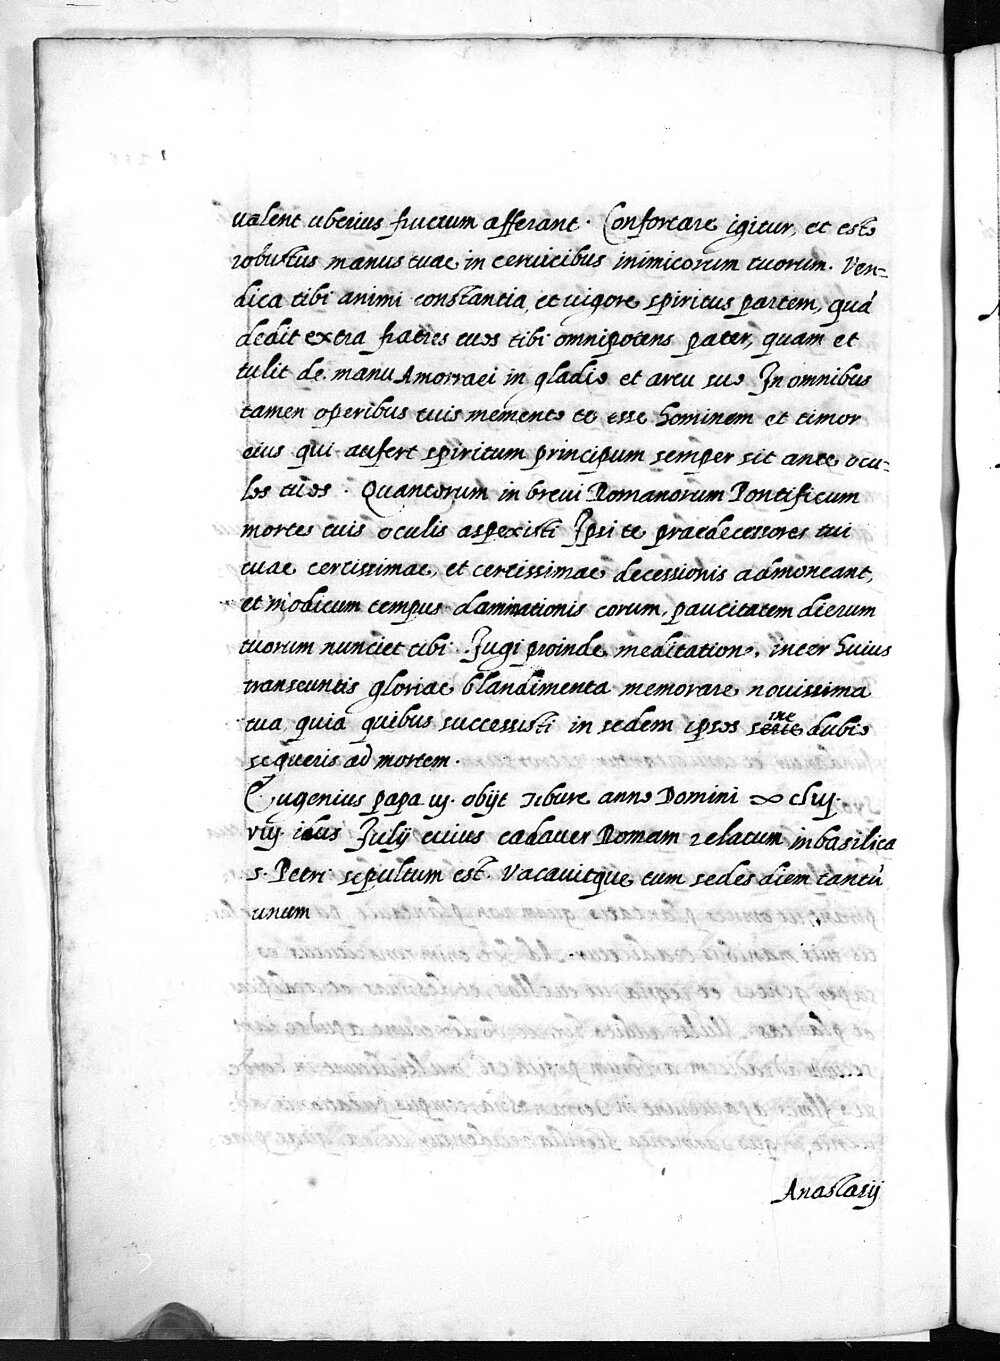 valent uberius fructum afferant. Confortare igitur, et esto
robustus manus tuae in ceruicibus inimicorum tuorum. Ven=
dica tibi animi constantia, et uigore spiritus partem, quā
dedit extra fratres tuos tibi omnipotens pater, quam et
tulit de manu Amorraei in gladio et arcu suo In omnibus
tamen operibus tuis memento te esse hominem et timor
eius qui aufert spiritum principum semper sit ante ocu=
los tuos. Quantorum in breui Romanorum Pontificum
mortes tuis oculis aspexisti Ipsi te praedecessores tui
tuae certissimae, et certissimae decessionis admoneant,
et modicum tempus daminationis eorum, paucitatem dierum
tuorum nunciet tibi. Jugi proinde meditatione, inter huius
transeuntis gloriae blandimenta memorare nouissima
tua, quia quibus successisti in sedem ipsos sine dubio
sequeris ad mortem.
Eugenius papa iij. obijt Tibure anno Domini ∞ cliij.
viij idus Julij cuius cadauer Romam relatum in basilica
s. Petri sepultum est. Vacauitque tum sedes diem tantū
unum
Anastasij